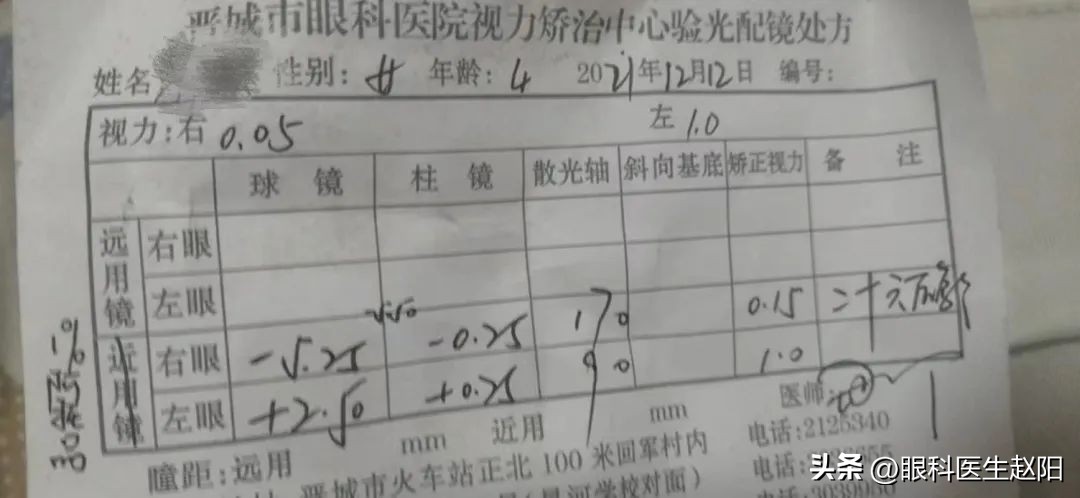 晋城市眼科医院视力矫治中心验光配镜处方
姓名 性别: 女 年龄: 4 2021年12月12日 编号:
视力:右 0.05 左 1.0
球 镜 柱 镜 散光轴 斜向基底 矫正视力 备 注
远用镜 右眼
左眼 0.15
近用镜 右眼 -5.25 -0.25 170 1.0
左眼 +2.50 +0.25 90
1%
医师:
瞳距:远用 mm 近用 mm 电话:2125340
晋城市火车站正北 100 米回军村内 电话:
头条 @眼科医生赵阳